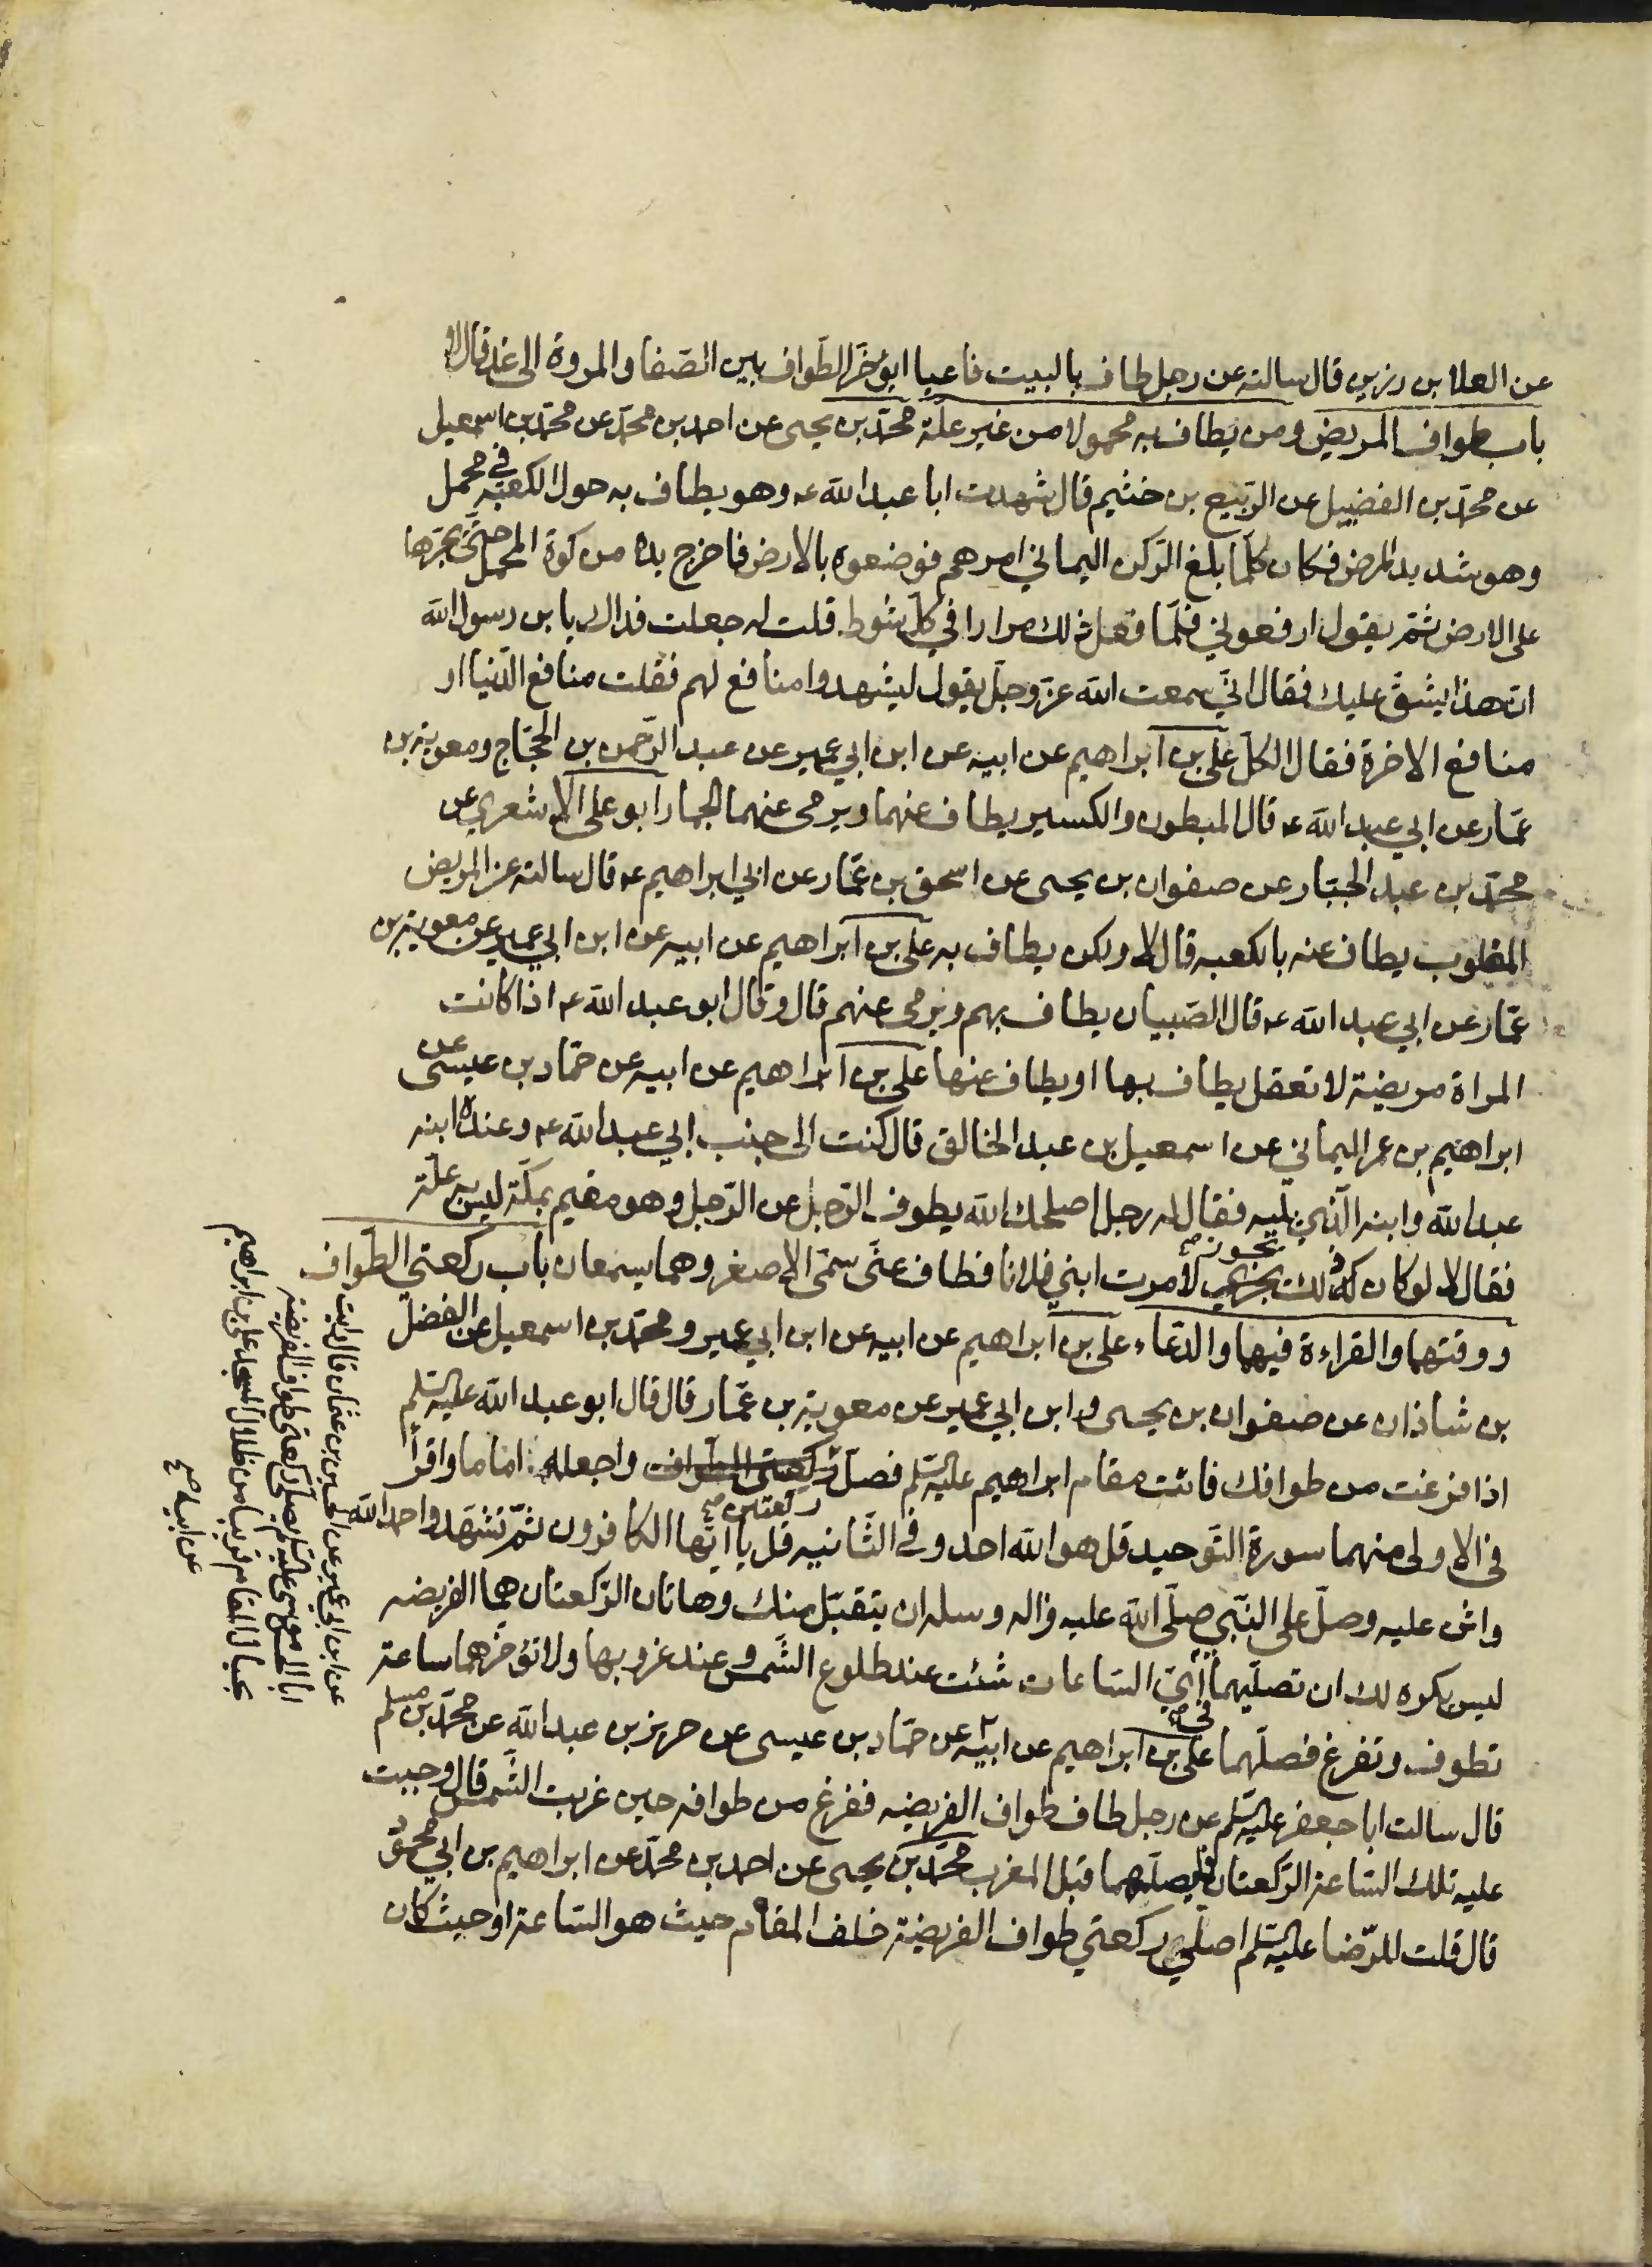 عن العلا بن رزين قال سالته عن رجل طاف بالبيت فاعيا ايؤخر الطواف بين الصفا والمروة الى غد قال لا
باب طواف المريض ومن يطاف به محمولا من غير علة محمد بن يحيى عن احمد بن محمد عن محمد بن اسمعيل
عن محمد بن الفضيل عن الربيع بن خثيم قال شهدت ابا عبد الله عه وهو يطاف به حول الكعبه في محمل
وهو شديد المرض فكان كلما بلغ الركن اليماني امرهم فوضعوه بالارض فاخرج يده من كوة المحمل حتى يجرها
على الارض ثم يقول ارفعوني فلما فعل ذلك مرارا في كل شوط قلت له جعلت فداك يا بن رسول الله
ان هذا يشق عليك فقال اني سمعت الله عز وجل يقول ليشهدوا منافع لهم فقلت منافع الدنيا او
منافع الاخرة فقال الكل علي بن ابراهيم عن ابيه عن ابن ابي عمير عن عبد الرحمن بن الحجاج ومعوية بن
عمار عن ابي عبد الله عه قال المبطون والكسير يطاف عنهما ويرمى عنهما الجمار ابو على الاشعري عن
محمد بن عبد الجبار عن صفوان بن يحيى عن اسحق بن عمار عن ابي ابراهيم عه قال سالته عن المريض
المغلوب يطاف عنه بالكعبه قال لا ولكن يطاف به علي بن ابراهيم عن ابيه عن ابن ابي عمير عن معوية بن
عمار عن ابي عبد الله عه قال الصبيان يطاف بهم ويرمى عنهم قال وقال ابو عبد الله عه اذا كانت
المراة مريضة لا تعقل يطاف بها او يطاف عنها علي بن ابراهيم عن ابيه عن حماد بن عيسى عن
ابراهيم بن عمر اليماني عن اسمعيل بن عبد الخالق قال كنت الى جنب ابي عبد الله عه وعنده ابنه
عبد الله وابنه الذي يليه فقال له رجل اصلحك الله يطوف الرجل عن الرجل وهو مقيم بمكة ليس به علة
فقال لا لو كان ذلك يجزي يجوز لامرت ابني فلانا فطاف عني سمى الاصغر وهما يسمعان باب ركعتي الطواف
ووقتهما والقراءة فيهما والدعاء علي بن ابراهيم عن ابيه عن ابن ابي عمير ومحمد بن اسمعيل عن الفضل
بن شاذان عن صفوان بن يحيى وابن ابي عمير عن معوية بن عمار قال قال ابو عبد الله عليه السلم
اذا فرغت من طوافك فائت مقام ابراهيم عليه السلم فصل ركعتي الطواف ركعتين واجعله اماما واقرا
في الاولى منهما سورة التوحيد قل هو الله احد وفي الثانيه قل يا ايها الكافرون ثم تشهد واحمد الله
واثن عليه وصل على النبي صلى الله عليه واله وسله ان يتقبل منك وهاتان الركعتان هما الفريضه
ليس يكره لك ان تصليهما في اي الساعات شئت عند طلوع الشمس وعند غروبها ولا تؤخرهما ساعة
تطوف وتفرغ فصلهما علي بن ابراهيم عن ابيه عن حماد بن عيسى عن حريز بن عبد الله عن محمد بن مسلم
قال سالت ابا جعفر عليه السلم عن رجل طاف طواف الفريضه ففرغ من طوافه حين غربت الشمس قال وجبت
عليه تلك الساعة الركعتان فليصلهما قبل المغرب محمد بن يحيى عن احمد بن محمد عن ابراهيم بن ابي محمود
قال قلت للرضا عليه السلم اصلي ركعتي طواف الفريضة خلف المقام حيث هو الساعة او حيث كان
علي بن ابراهيم
عن ابيه صح
عن ابن ابي عمير عن الحسين بن عثمان قال رايت
ابا الحسن موسى عليه السلم يصلي ركعتي طواف الفريضة
بحيال المقام قريبا من ظلال المسجد